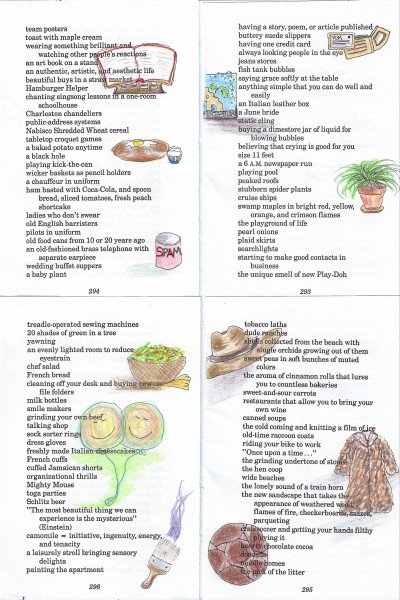 team posters
toast with maple cream
wearing something brilliant and
watching other people's reactions
an art book on a stand
an authentic, artistic, and aesthetic life
beautiful buys in a straw market
Hamburger Helper
chanting singsong lessons in a one-room
schoolhouse
Charleston chandeliers
public-address systems
Nabisco Shredded Wheat cereal
tabletop croquet games
a baked potato anytime
a black hole
playing kick-the-can
wicker baskets as pencil holders
a chauffeur in uniform
ham basted with Coca-Cola, and spoon
bread, sliced tomatoes, fresh peach
shortcake
ladies who don't swear
old English barristers
pilots in uniform
old food cans from 10 or 20 years ago
an old-fashioned brass telephone with
separate earpiece
wedding buffet suppers
a baby plant
SPAM
294
having a story, poem, or article published
buttery suede slippers
having one credit card
always looking people in the eye
jeans stores
fish tank bubbles
saying grace softly at the table
anything simple that you can do well and
easily
an Italian leather box
a June bride
static cling
buying a dimestore jar of liquid for
blowing bubbles
believing that crying is good for you
size 11 feet
a 6 A.M. newspaper run
playing pool
peaked roofs
stubborn spider plants
cruise ships
swamp maples in bright red, yellow,
orange, and crimson flames
the playground of life
pearl onions
plaid skirts
searchlights
starting to make good contacts in
business
the unique smell of new Play-Doh
293
treadle-operated sewing machines
20 shades of green in a tree
yawning
an evenly lighted room to reduce
eyestrain
chef salad
French bread
cleaning off your desk and buying new
file folders
milk bottles
smile makers
grinding your own beef
talking shop
sock sorter rings
dress gloves
freshly made Italian cheesecakes
French cuffs
cuffed Jamaican shorts
organizational thrills
Mighty Mouse
toga parties
Schlitz beer
"The most beautiful thing we can
experience is the mysterious"
(Einstein)
camomile = initiative, ingenuity, energy,
and tenacity
a leisurely stroll bringing sensory
delights
painting the apartment
296
tobacco laths
dude ranches
shells collected from the beach with
single orchids growing out of them
sweet peas in soft bunches of muted
colors
the aroma of cinnamon rolls that lures
you to countless bakeries
sweet-and-sour carrots
restaurants that allow you to bring your
own wine
canned soups
the cold coming and knitting a film of ice
old-time raccoon coats
riding your bike to work
"Once upon a time . . ."
the grinding undertone of stones
the hen coop
wide beaches
the lonely sound of a train horn
the new landscape that takes the
appearance of weathered wood,
flames of fire, checkerboards, mazes,
parqueting
crab soccer and getting your hands filthy
playing it
hearty chocolate cocoa
doodads
mobile homes
the pick of the litter
295